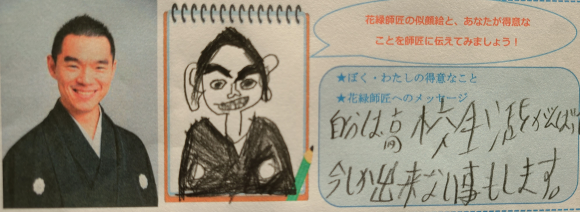 花緑師匠の似顔絵と、あなたが得意な
ことを師匠に伝えてみましょう!
★ぼく・わたしの得意なこと
★花緑師匠へのメッセージ
自分は高校生活がんば
今しか出来ない事もします。